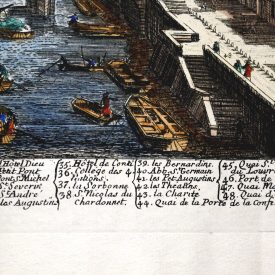 Hôtel Dieu
Petit Pont
Pont S. Michel
S. Severin
S. Andre
les Augustins
35. Hôtel de Conti
36. College des 4
Nations.
37. la Sorbonne
38 S. Nicolas du
chardonnet.
39. les Bernardins.
40. Abb. S. Germain
41. les Pet. Augustins
42. les Theatins
43. la Charité
44. Quai de la Porte de la Confe
45. Quai S.
du Louvr
46. Port de
47. Quai Ma
48. Quai d